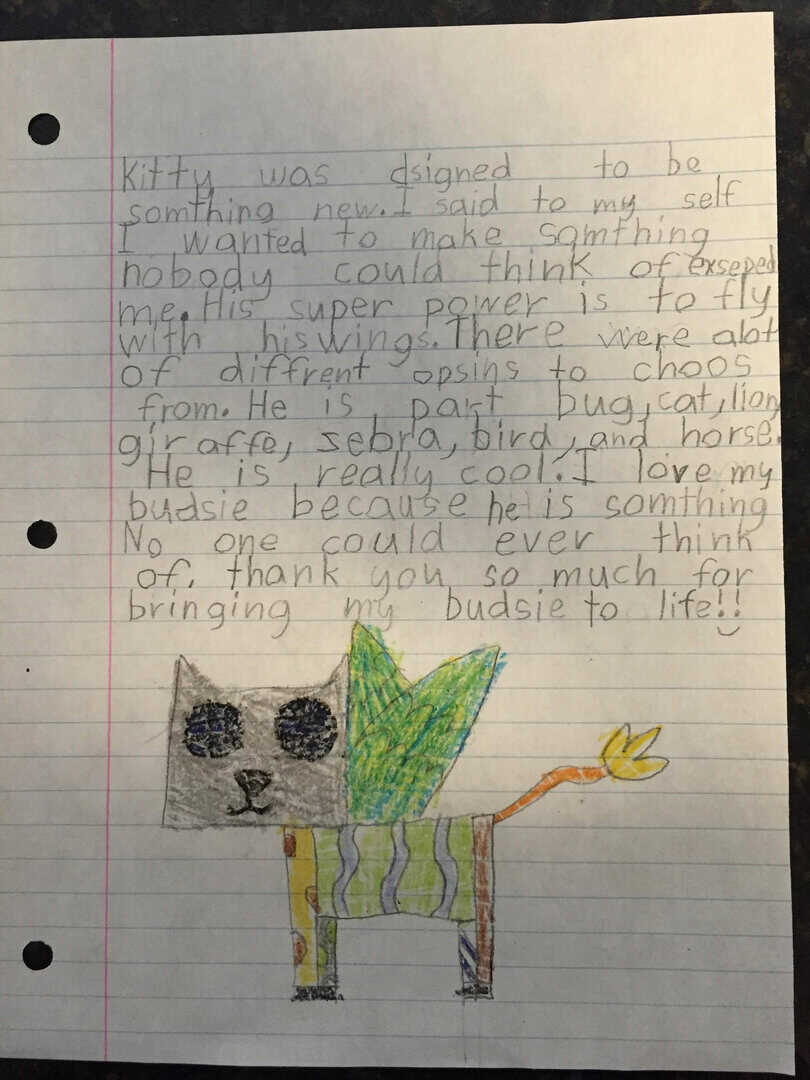 Kitty was dsigned to be
somthing new. I said to my self
I wanted to make somthing
nobody could think of exseped
me. His super power is to fly
with his wings. There were alot
of diffrent opsins to choos
from. He is part bug, cat, lion,
giraffe, sebra, bird, and horse.
He is really cool. I love my
budsie because he is somthing
No one could ever think
of. thank you so much for
bringing my budsie to life!!